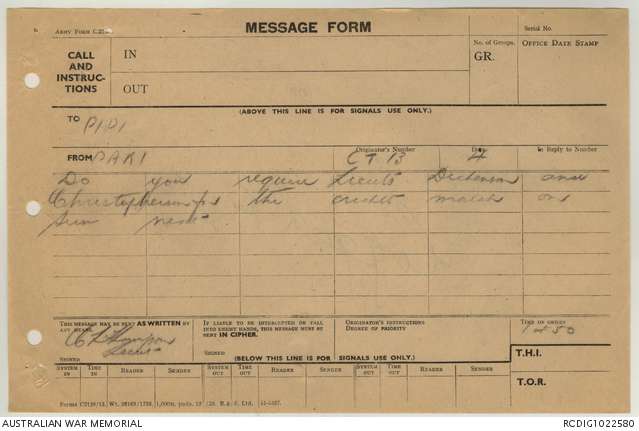 ARMY FORM C.
MESSAGE FORM
Serial No.
CALL AND INSTRUCTIONS
IN
OUT
No. of Groups.
GR.
OFFICE DATE STAMP
(ABOVE THIS LINE IS FOR SIGNALS USE ONLY.)
TO PIPI
FROM PARI
Originator's Number CT 13
Date 4
In Reply to Number
Do you require Lieuts Dickenson and
Christopherson for the cricket match on
Sun next
THIS MESSAGE MAY BE SENT AS WRITTEN BY ANY MEANS.
SIGNED
Lieut
IF LIABLE TO BE INTERCEPTED OR FALL INTO ENEMY HANDS, THIS MESSAGE MUST BE SENT IN CIPHER.
SIGNED
ORIGINATOR'S INSTRUCTIONS
DEGREE OF PRIORITY
TIME OF ORIGIN
1450
(BELOW THIS LINE IS FOR SIGNALS USE ONLY.)
T.H.I.
SYSTEM IN TIME IN READER SENDER SYSTEM OUT TIME OUT READER SENDER SYSTEM OUT TIME OUT READER SENDER
T.O.R.
AUSTRALIAN WAR MEMORIAL
RCDIG1022580